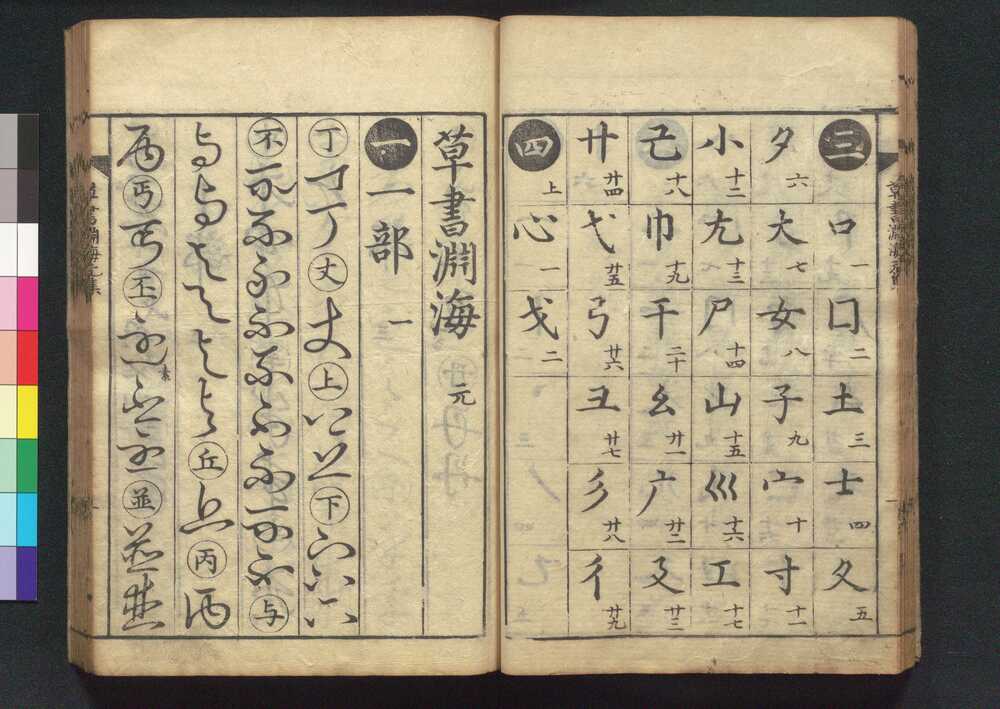 三 口一 囗二 土三 士四 夂五
夕六 大七 女八 子九 宀十 寸十一
小十二 尢十三 尸十四 山十五 巛十六 工十七
己十八 巾十九 干二十 幺廿一 广廿二 廴廿三
廾廿四 弋廿五 弓廿六 彐廿七 彡廿八 彳廿九
四上 心一 戈二
草書淵海 元
一 一部 一
丁 丁 丁 丈 丈 上 上 上 下 下 下 下
不 不 不 不 不 不 不 不 不 不 与
丘 丘 丙 丙
丙 丐 丐 丕 並 並 並
草書淵海元集